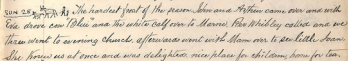 SUN 28 The hardest frost of the season. John and Arthur came over and with
Eric drove cow "Olive" and the white calf over to Marris. Bro Whibley called and we
three went to evening church, afterwards went with Mam over to see little Joan.
She knew us at once and was delighted, nice place for children, home for tea.